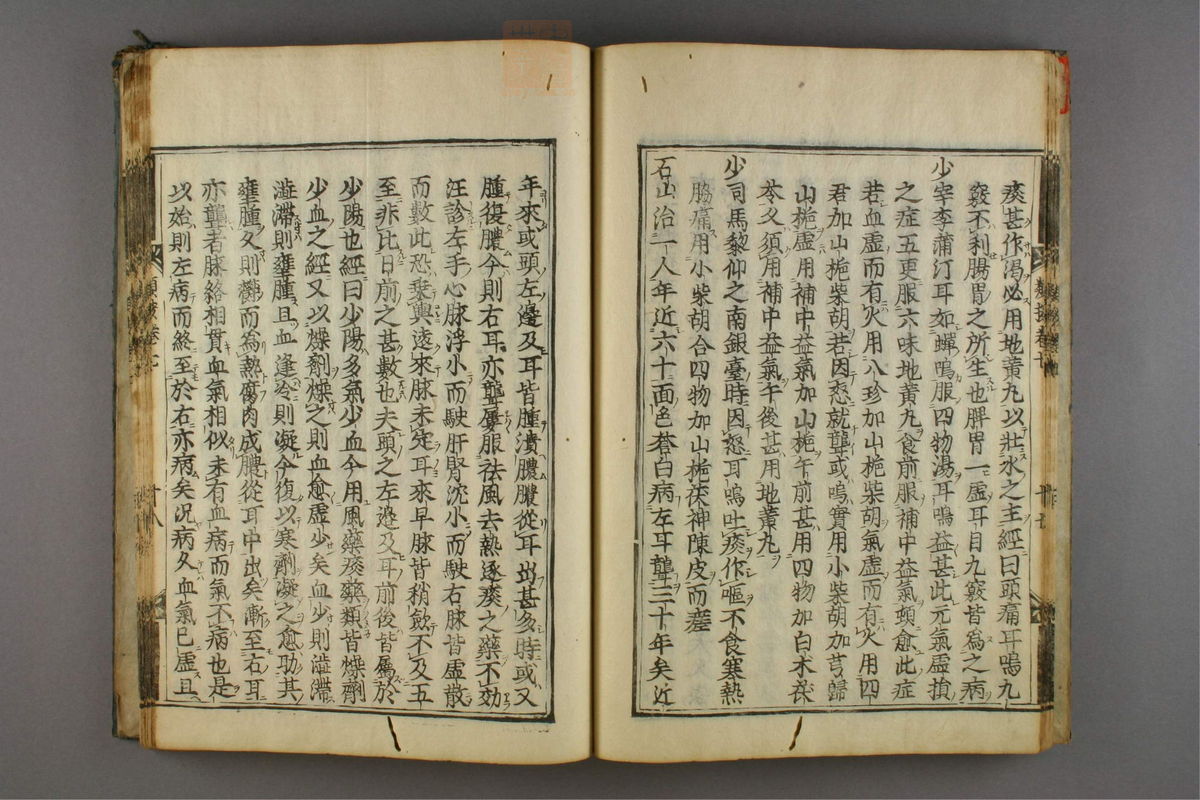 痰甚作渴必用地黄丸以壯水之主經曰頭痛耳鳴九
竅不利腸胃之所生也脾胃一虛耳目九竅皆為之病
少宰李蒲汀耳如蟬鳴服四物湯耳鳴益甚此元氣虛損
之症五更服六味地黄丸食前服補中益氣頓愈此症
若血虛而有火用八珍加山梔柴胡氣虛而有火用四
君加山梔柴胡若因怒就聾或鳴實用小柴胡加芎歸
山梔虛用補中益氣加山梔午前甚用四物加白术茯
苓久須用補中益氣午後甚用地黄丸
少司馬黎仰之南銀臺時因怒耳鳴吐痰作嘔不食寒熱
脇痛用小柴胡合四物加山梔茯神陳皮而瘥
石山治一人年近六十面色蒼白病左耳聾三十年矣近
年來或頭左邊及耳皆腫潰膿膿從耳出甚多時或又
腫復膿今則右耳亦聾屢服祛風去熱逐痰之藥不効
汪診左手心脉浮小而駛肝腎沉小而駛右脉皆虛散
而數此恐乗輿遠來脉未定耳來早脉皆稍歛不及五
至非比日前之甚數也夫頭之左邊及耳前後皆屬於
少陽也經曰少陽多氣少血今用風藥痰藥類皆燥劑
少血之經又以燥劑燥之則血愈虛少矣血少則澁滯
澁滯則壅腫且血逢冷則凝今復以寒劑凝之愈助其
壅腫久則欝而為熱腐肉成膿從耳中出矣漸至右耳
亦聾者脉絡相貫血氣相似未有血病而氣不病也是
以始則左病而終至於右亦病矣况病久血氣已虛且
十八